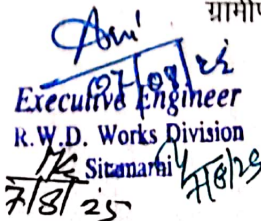 ग्रामीण
07/08/25
Executive Engineer
R.W.D. Works Division
Sitamarhi
7/8/25
7/8/25